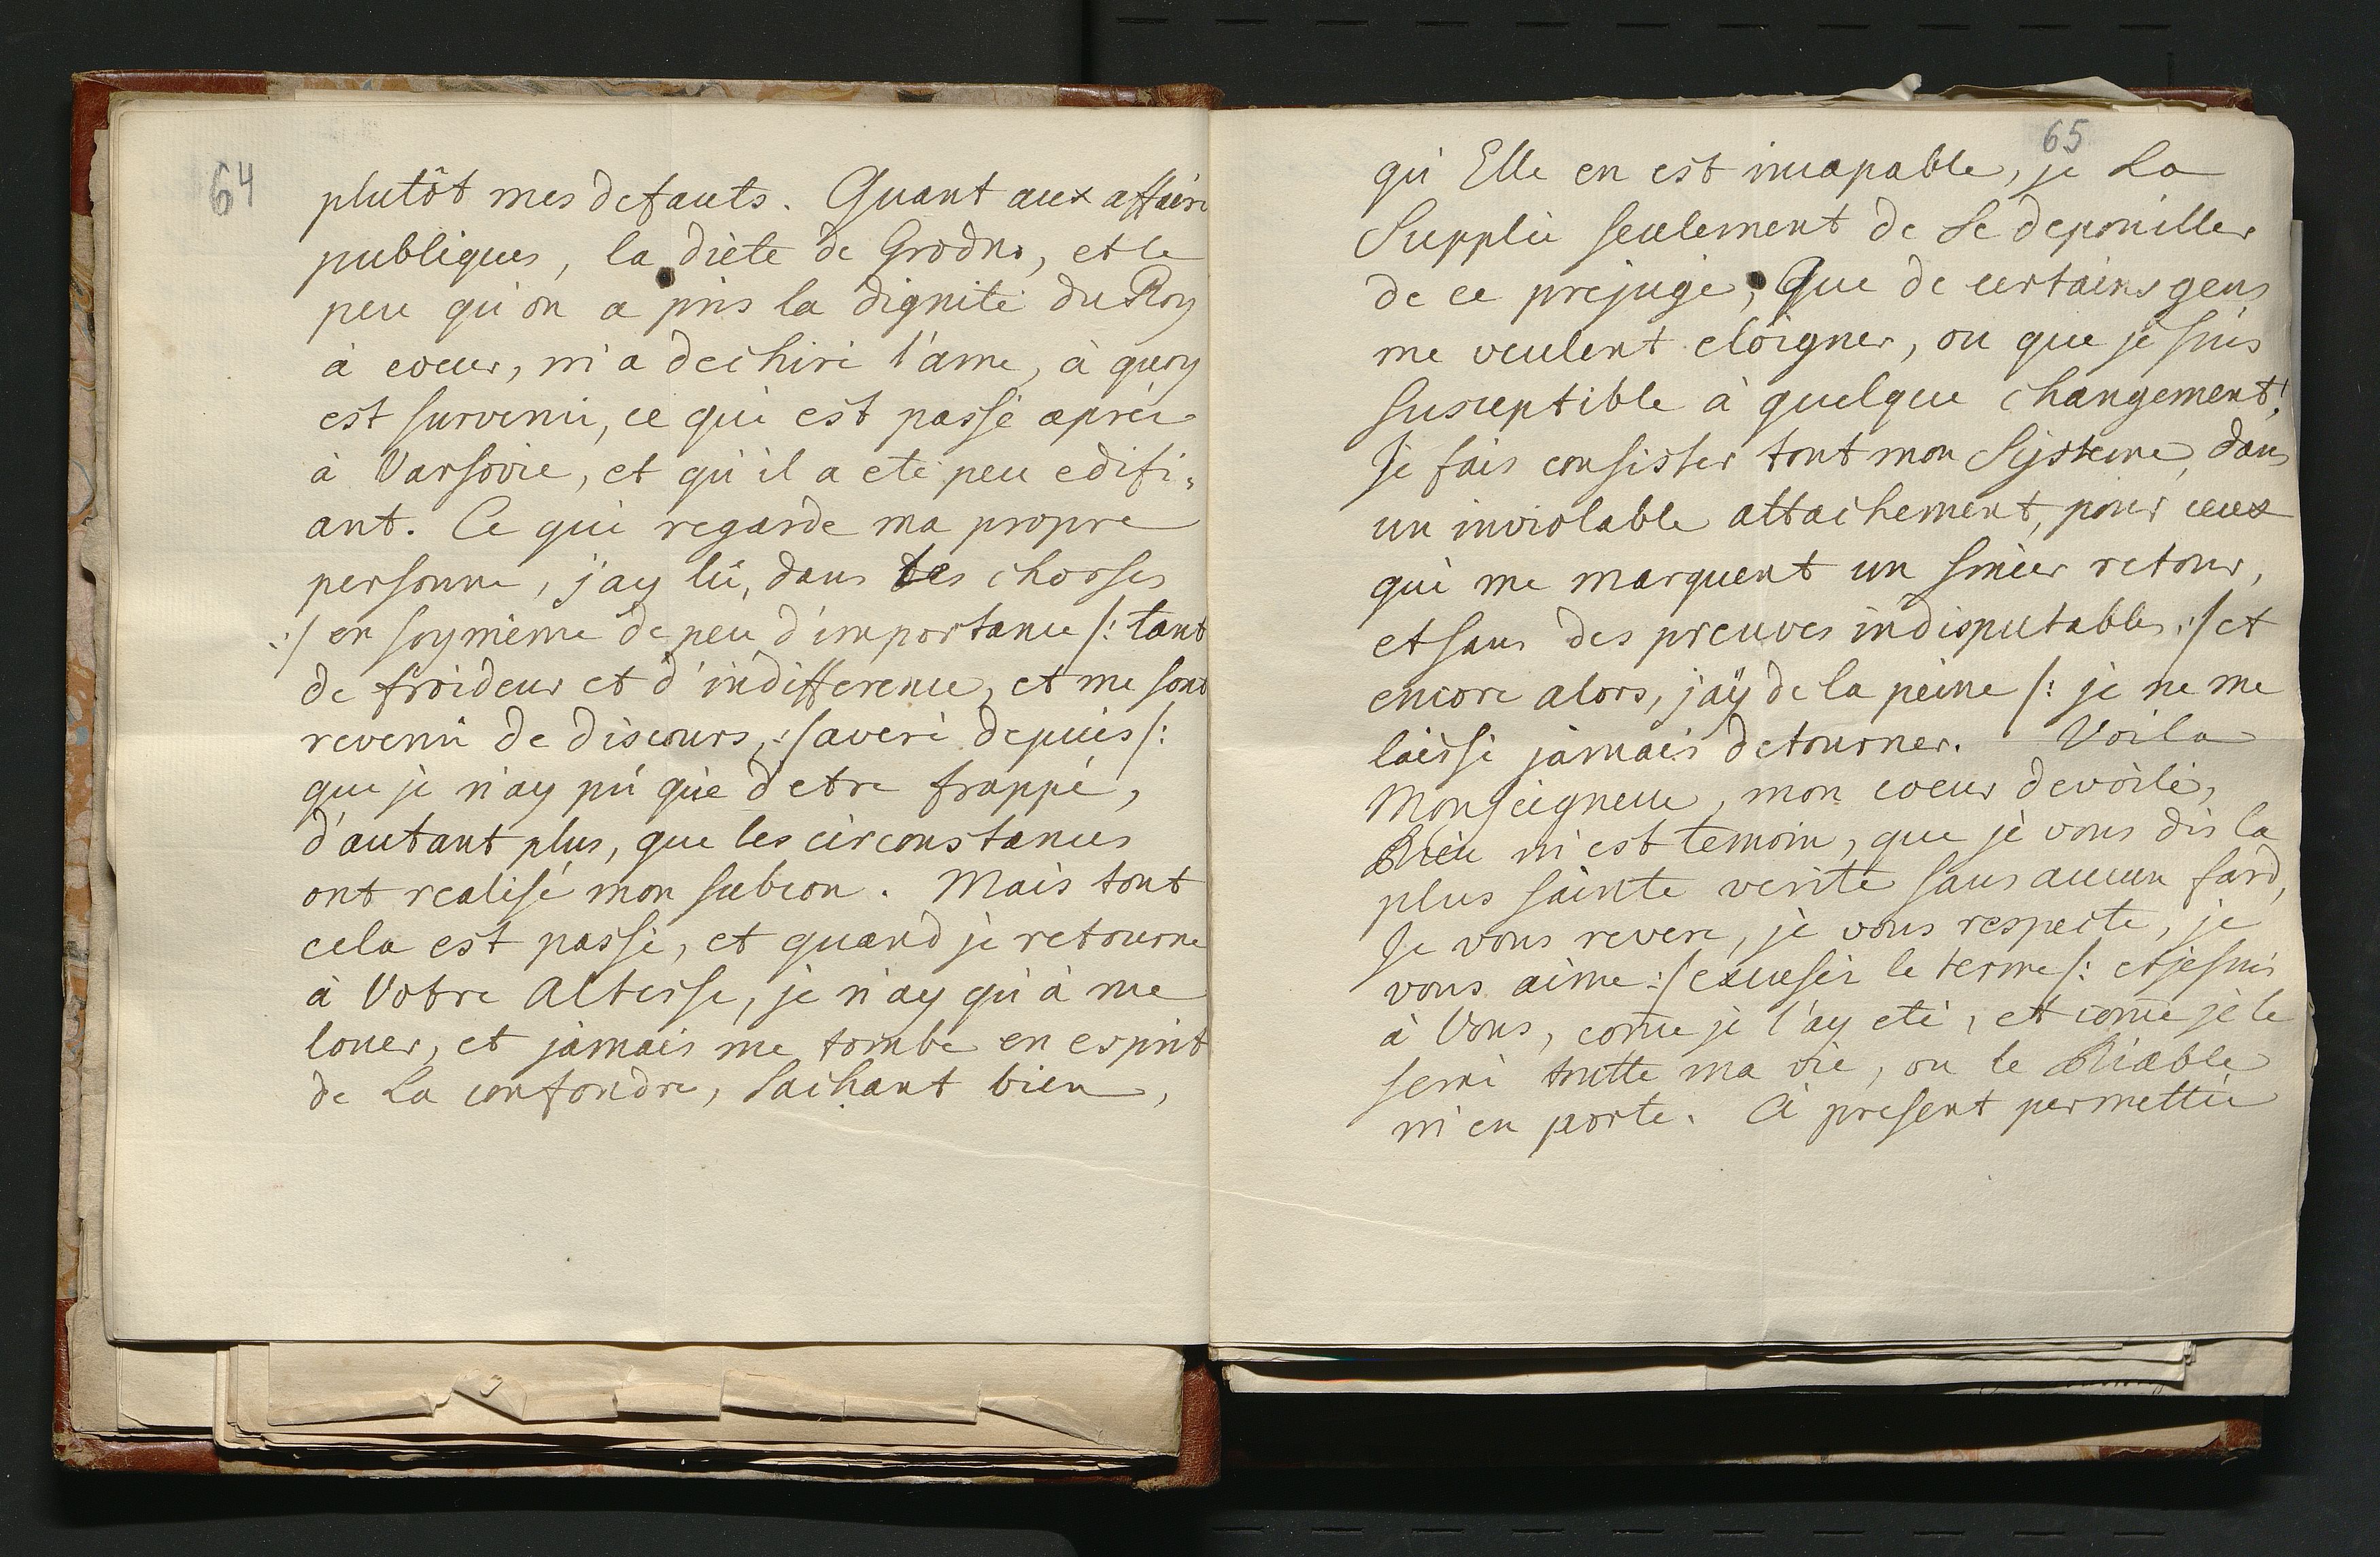 64
plutôt mes defauts. Quant aux affaire
publiques, la diète de Grodno, et le
peu qu'on a pris la dignité du Roy
à coeur, m'a dechiré l'ame, à quoy
est survenu, ce qui est passé aprés
à Varsovie, et qu'il a eté peu edifi-
ant. Ce qui regarde ma propre
personne, j'ay lû, dans des chosses
:/ en soymème de peu d'importance /: tant
de froideur et d'indifference, et me sont
revenû de discours, :/ averé depuis /:
que je n'ay pû que d'etre frappé,
d'autant plus, que les circonstances
ont realisé mon subcon. Mais tout
cela est passé, et quand je retourne
à Votre Altesse, je n'ay qu'à me
louer, et jamais me tombe en esprit
de La confondre, Sachant bien,
65
qu'Elle en est incapable, je La
Supplie seulement de Se depouiller
de ce prejugé, Que de certains gens
me veulent eloigner, ou que je suis
susceptible à quelque changement!
Je fais consister tout mon Systeme, dans
un inviolable attachement, pour ceux
qui me marquent un sincer retour,
et sans des preuves indisputables :/ et
encore alors, j'aÿ de la peine /: je ne me
laisse jamais detourner. Voila
Monseigneur, mon coeur devoilé,
Dieu m'est temoin, que je vous dis la
plus sainte verité sans aucun fard,
Je vous revere, je vous respecte, je
vous aime :/ excusér le terme /: et je suis
à Vous, com̄e je l'ay eté, et com̄e je le
seré toutte ma vie, ou le Diable
m'en porte. à present permettée